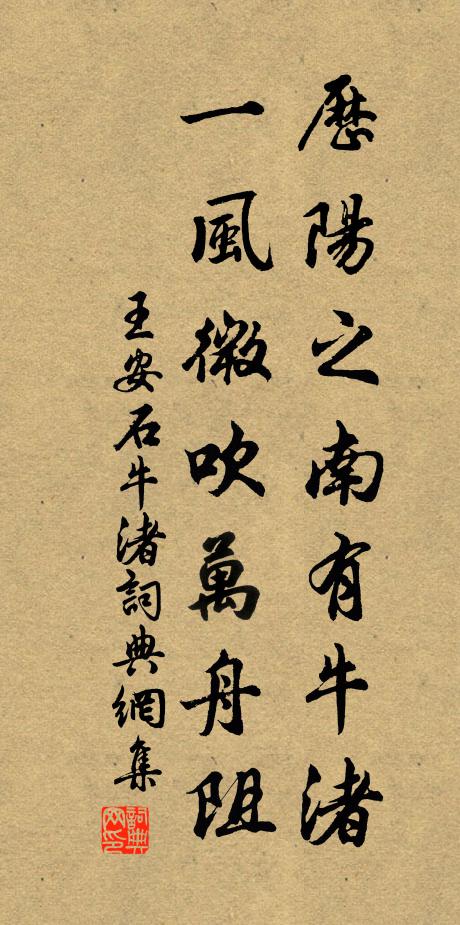 歷陽之南有牛渚
一風微吹萬舟阻
王安石牛渚詞典網集
詞典网印